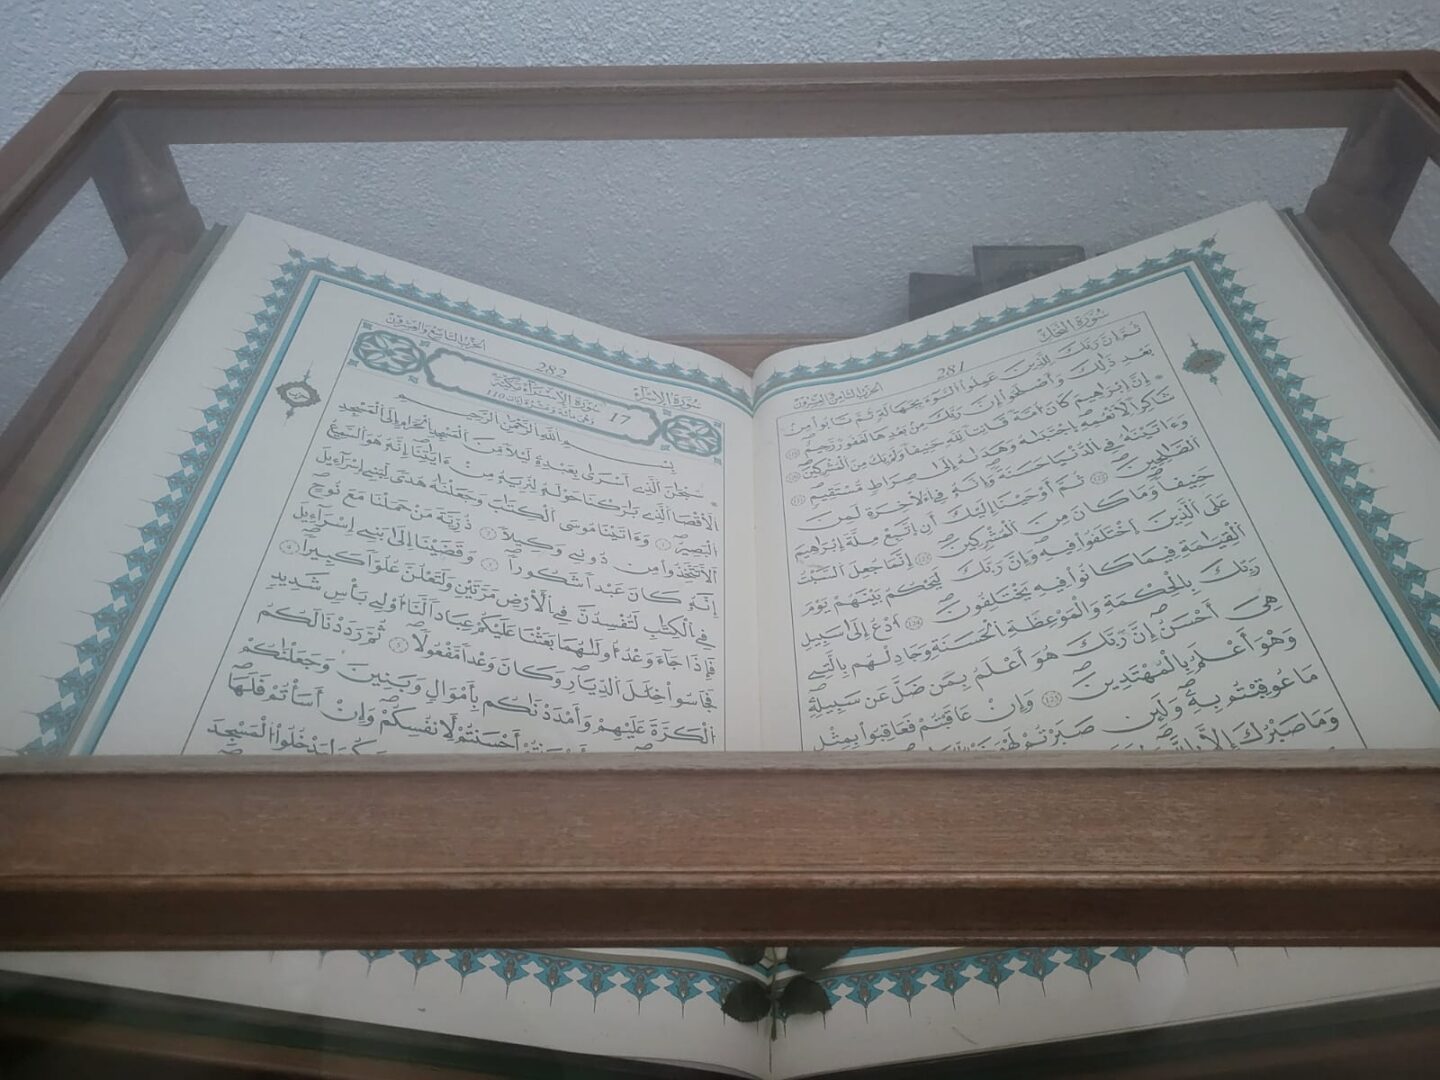 سُورَةُ النَّحْلِ
281
الحزب الثامن والعشرون
ثُمَّ إِنَّ رَبَّكَ لِلَّذِينَ عَمِلُوا۟ ٱلسُّوٓءَ بِجَهَٰلَةٍ ثُمَّ تَابُوا۟ مِنۢ
بَعْدِ ذَٰلِكَ وَأَصْلَحُوٓا۟ إِنَّ رَبَّكَ مِنۢ بَعْدِهَا لَغَفُورٌ رَّحِيمٌ
إِنَّ إِبْرَٰهِيمَ كَانَ أُمَّةً قَانِتًا لِّلَّهِ حَنِيفًا وَلَمْ يَكُ مِنَ ٱلْمُشْرِكِينَ
شَاكِرًا لِّأَنْعُمِهِ ٱجْتَبَىٰهُ وَهَدَىٰهُ إِلَىٰ صِرَٰطٍ مُّسْتَقِيمٍ
وَءَاتَيْنَٰهُ فِى ٱلدُّنْيَا حَسَنَةً وَإِنَّهُۥ فِى ٱلْءَاخِرَةِ لَمِنَ
ٱلصَّٰلِحِينَ ثُمَّ أَوْحَيْنَآ إِلَيْكَ أَنِ ٱتَّبِعْ مِلَّةَ إِبْرَٰهِيمَ
حَنِيفًا وَمَا كَانَ مِنَ ٱلْمُشْرِكِينَ إِنَّمَا جُعِلَ ٱلسَّبْتُ
عَلَى ٱلَّذِينَ ٱخْتَلَفُوا۟ فِيهِ وَإِنَّ رَبَّكَ لَيَحْكُمُ بَيْنَهُمْ يَوْمَ
ٱلْقِيَٰمَةِ فِيمَا كَانُوا۟ فِيهِ يَخْتَلِفُونَ ٱدْعُ إِلَىٰ سَبِيلِ
رَبِّكَ بِٱلْحِكْمَةِ وَٱلْمَوْعِظَةِ ٱلْحَسَنَةِ وَجَٰدِلْهُم بِٱلَّتِى
هِىَ أَحْسَنُ إِنَّ رَبَّكَ هُوَ أَعْلَمُ بِمَن ضَلَّ عَن سَبِيلِهِۦ
وَهُوَ أَعْلَمُ بِٱلْمُهْتَدِينَ وَإِنْ عَاقَبْتُمْ فَعَاقِبُوا۟ بِمِثْلِ
مَا عُوقِبْتُم بِهِۦ وَلَئِن صَبَرْتُمْ لَهُوَ
وَمَا صَبْرُكَ إِلَّا
سُورَةُ الإِسْرَاء
282
الحزب التاسع والعشرون
17 سُورَةُ الإِسْرَاءِ مَكِّيَّة
110
بِسْمِ ٱللَّهِ ٱلرَّحْمَٰنِ ٱلرَّحِيمِ
سُبْحَٰنَ ٱلَّذِىٓ أَسْرَىٰ بِعَبْدِهِۦ لَيْلًا مِّنَ ٱلْمَسْجِدِ ٱلْحَرَامِ إِلَى ٱلْمَسْجِدِ
ٱلْأَقْصَا ٱلَّذِى بَٰرَكْنَا حَوْلَهُۥ لِنُرِيَهُۥ مِنْ ءَايَٰتِنَآ إِنَّهُۥ هُوَ ٱلسَّمِيعُ
ٱلْبَصِيرُ وَءَاتَيْنَا مُوسَى ٱلْكِتَٰبَ وَجَعَلْنَٰهُ هُدًى لِّبَنِىٓ إِسْرَٰٓءِيلَ
أَلَّا تَتَّخِذُوا۟ مِن دُونِى وَكِيلًا ذُرِّيَّةَ مَنْ حَمَلْنَا مَعَ نُوحٍ
إِنَّهُۥ كَانَ عَبْدًا شَكُورًا وَقَضَيْنَآ إِلَىٰ بَنِىٓ إِسْرَٰٓءِيلَ
فِى ٱلْكِتَٰبِ لَتُفْسِدُنَّ فِى ٱلْأَرْضِ مَرَّتَيْنِ وَلَتَعْلُنَّ عُلُوًّا كَبِيرًا
فَإِذَا جَآءَ وَعْدُ أُولَىٰهُمَا بَعَثْنَا عَلَيْكُمْ عِبَادًا لَّنَآ أُو۟لِى بَأْسٍ شَدِيدٍ
فَجَاسُوا۟ خِلَٰلَ ٱلدِّيَارِ وَكَانَ وَعْدًا مَّفْعُولًا ثُمَّ رَدَدْنَا لَكُمُ
ٱلْكَرَّةَ عَلَيْهِمْ وَأَمْدَدْنَٰكُم بِأَمْوَٰلٍ وَبَنِينَ وَجَعَلْنَٰكُمْ
أَحْسَنتُمْ لِأَنفُسِكُمْ وَإِنْ أَسَأْتُمْ فَلَهَا
لِيَدْخُلُوا۟ ٱلْمَسْجِدَ